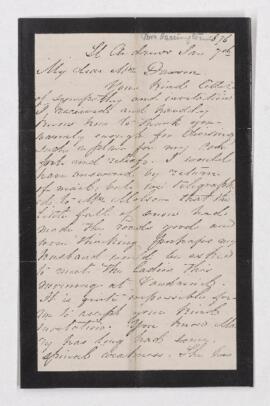 1876
St. Andrews Jan 7th
My dear Mrs Dawson
Your kind letter
of sympathy and invitation
I received and hardly
know how to thank you
enough for devising
such a plan for my com
fort and relief. I would
have answered by return
of mail, but we telegraph
ed to Mr Molson that the
little fall of snow had
made the roads good and
now thinking perhaps my
husband would be able
to meet the ladies this
morning at Vaudreuil.
It is quite impossible for
me to accept your kind
invitation. You know Ma
ry has long had some
spinal weakness. She has